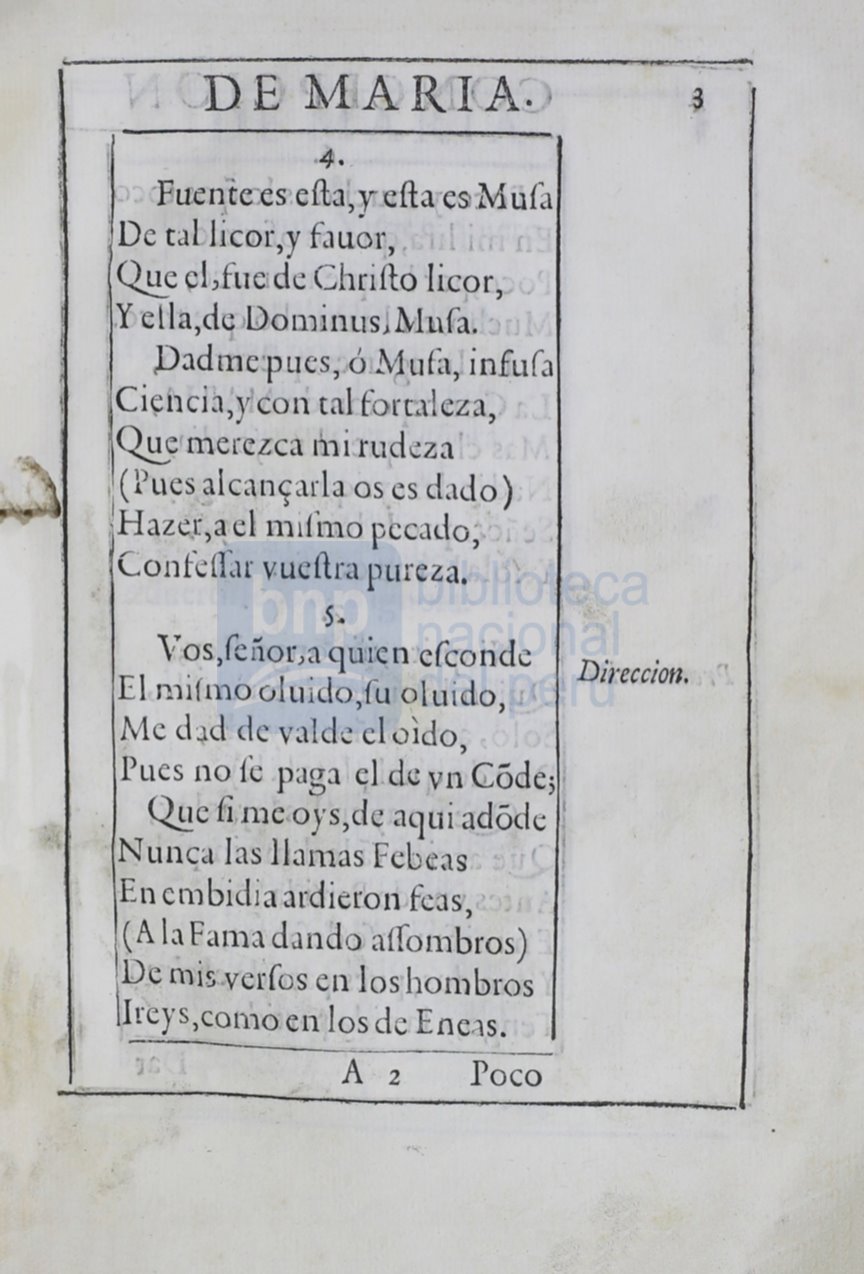 DE MARIA. 3
4.
Fuente es esta, y esta es Musa
De tal licor, y fauor,
Que el, fue de Christo licor,
Y ella, de Dominus, Musa.
Dadme pues, ó Musa, infusa
Ciencia, y con tal fortaleza,
Que merezca mi rudeza
(Pues alcançarla os es dado)
Hazer, a el mismo pecado,
Confessar vuestra pureza.
5.
Vos, señor, a quien esconde
El mismo oluido, su oluido,
Direccion.
Me dad de valde el oìdo,
Pues no se paga el de vn Cõde;
Que si me oys, de aqui adõde
Nunca las llamas Febeas
En embidia ardieron feas,
(A la Fama dando assombros)
De mis versos en los hombros
Ireys, como en los de Eneas.
A 2 Poco
bnp biblioteca
nacional
del perú